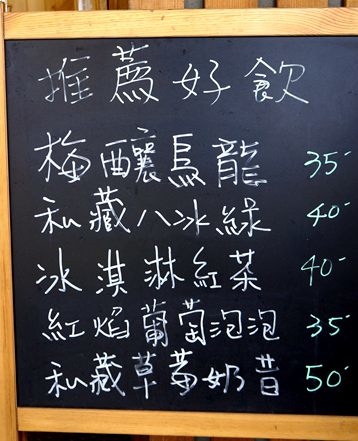 推薦好飲
梅釀烏龍 35-
私藏八冰綠 40-
冰淇淋紅茶 40-
紅焰葡萄泡泡 35-
私藏草莓奶昔 50-